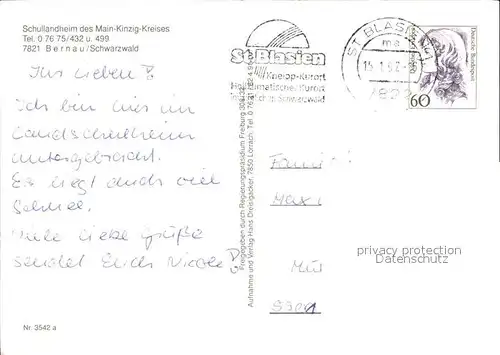 Schullandheim des Main-Kinzig-Kreises
Tel. 0 76 75/432 u. 499
7821 Bernau/Schwarzwald
Ihr Lieben!
Ich bin hier im
Landschulheim
untergebracht.
Es liegt auch viel
Schnee.
Viele liebe Grüße
sendet Euch Nicole
Nr. 3542 a
Freigegeben durch Regierungspräsidium Freiburg
Aufnahme und Verlag Hans Dreisigacker, 7850 Lörrach, Tel. 0 76
St. Blasien
Kneipp-Kurort
Heilklimatischer Kurort
Schwarzwald
ST BLASIEN 1
ma
7822
Deutsche Bundespost
60
Fami
Max
privacy protection
Datenschutz
Mü